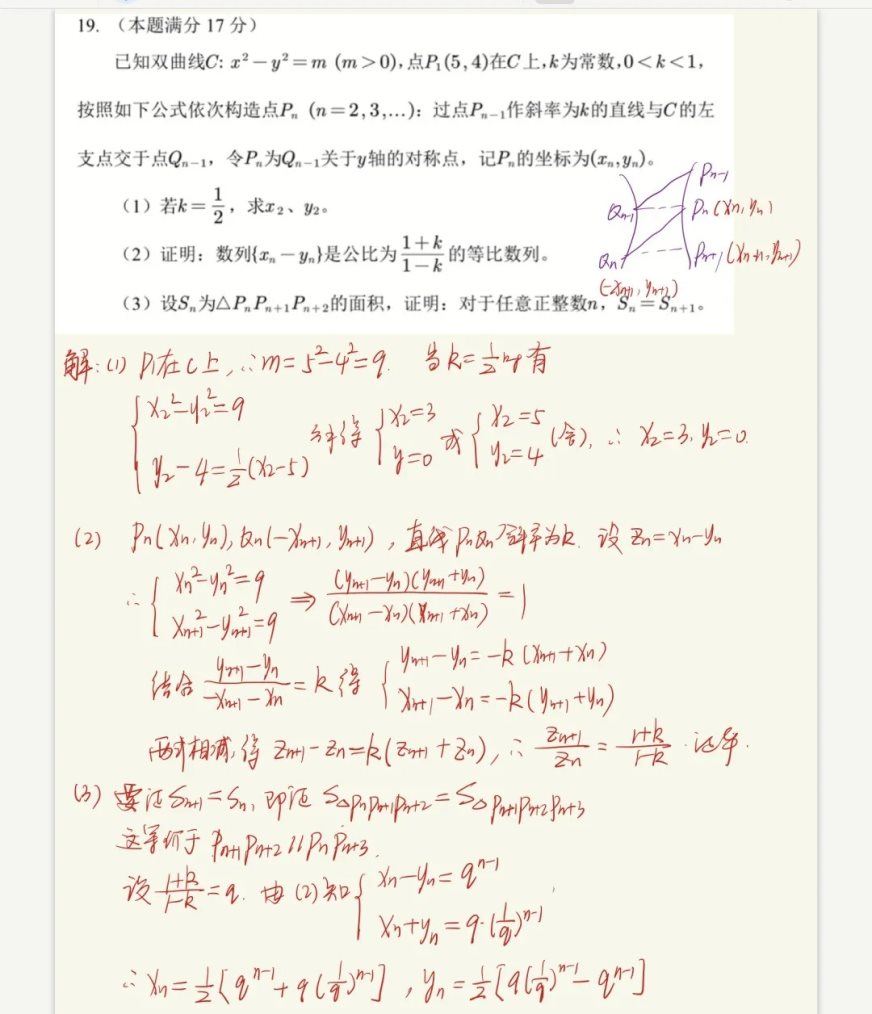 19. （本题满分 17 分）
已知双曲线C: x² − y² = m (m > 0), 点P₁(5, 4)在C上, k为常数, 0 < k < 1,
按照如下公式依次构造点Pₙ (n = 2, 3, …): 过点Pₙ₋₁作斜率为k的直线与C的左
支点交于点Qₙ₋₁, 令Pₙ为Qₙ₋₁关于y轴的对称点, 记Pₙ的坐标为(xₙ, yₙ)。
(1) 若k = 1/2, 求x₂、y₂。
(2) 证明: 数列{xₙ − yₙ}是公比为 (1+k)/(1−k) 的等比数列。
(3) 设Sₙ为△PₙPₙ₊₁Pₙ₊₂的面积, 证明: 对于任意正整数n, Sₙ = Sₙ₊₁。
Pₙ₋₁
Qₙ₋₁
Pₙ(xₙ, yₙ)
Qₙ
Pₙ₊₁(xₙ₊₁, yₙ₊₁)
(−xₙ₊₁, yₙ₊₁)
解: (1) P₁在C上, ∴ m = 5² − 4² = 9. 当k = 1/2时有
{ x₂² − y₂² = 9
y₂ − 4 = 1/2 (x₂ − 5)
解得 { x₂ = 3 y = 0 或 { x₂ = 5 y₂ = 4 (舍), ∴ x₂ = 3, y₂ = 0.
(2) Pₙ(xₙ, yₙ), Qₙ(−xₙ₊₁, yₙ₊₁), 直线PₙQₙ斜率为k. 设 zₙ = xₙ − yₙ
∴ { xₙ² − yₙ² = 9 xₙ₊₁² − yₙ₊₁² = 9 ⇒ (yₙ₊₁ − yₙ)(yₙ₊₁ + yₙ) / (xₙ₊₁ − xₙ)(xₙ₊₁ + xₙ) = 1
结合 (yₙ₊₁ − yₙ)/(−xₙ₊₁ − xₙ) = k 得 { yₙ₊₁ − yₙ = −k(xₙ₊₁ + xₙ)
xₙ₊₁ − xₙ = −k(yₙ₊₁ + yₙ)
两式相减, 得 zₙ₊₁ − zₙ = k(zₙ₊₁ + zₙ), ∴ zₙ₊₁/zₙ = (1+k)/(1−k). 证毕.
(3) 要证Sₙ₊₁ = Sₙ, 即证 S△PₙPₙ₊₁Pₙ₊₂ = S△Pₙ₊₁Pₙ₊₂Pₙ₊₃
这等价于 Pₙ₊₁Pₙ₊₂ // PₙPₙ₊₃.
设 (1+k)/(1−k) = q. 由(2)知 { xₙ − yₙ = qⁿ⁻¹
xₙ + yₙ = 9·(1/q)ⁿ⁻¹
∴ xₙ = 1/2 [qⁿ⁻¹ + 9(1/q)ⁿ⁻¹], yₙ = 1/2 [9(1/q)ⁿ⁻¹ − qⁿ⁻¹]